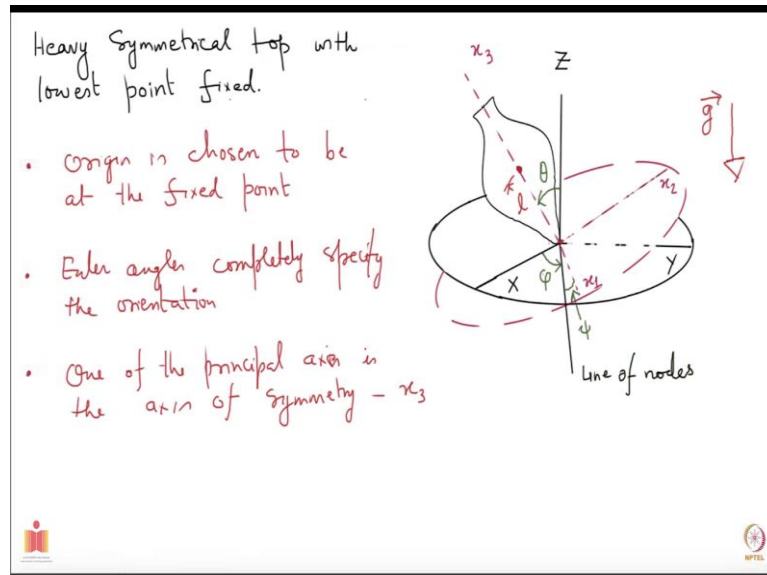 Heavy Symmetrical top with
lowest point fixed.
• Origin is chosen to be
at the fixed point
• Euler angles completely specify
the orientation
• One of the principal axis is
the axis of symmetry - x3
x3
Z
g
θ
l
x2
X
φ
x1
Y
ψ
Line of nodes
NPTEL